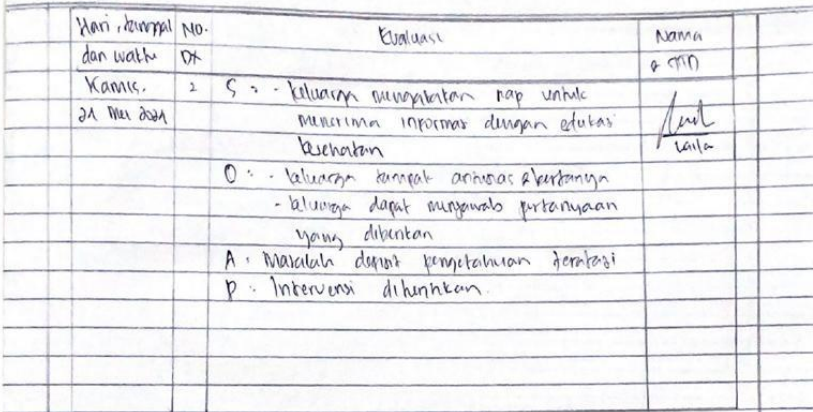 Hari, tanggal dan waktu
NO. DX
Evaluasi
Nama & TTD
Kamis, 21 Mei 2021
2
S : - keluarga mengatakan siap untuk
menerima informasi dengan edukasi
kesehatan
Laila
O : - keluarga tampak antusias & bertanya
- keluarga dapat menjawab pertanyaan
yang diberikan
A : Masalah defisit pengetahuan teratasi
P : Intervensi dihentikan.